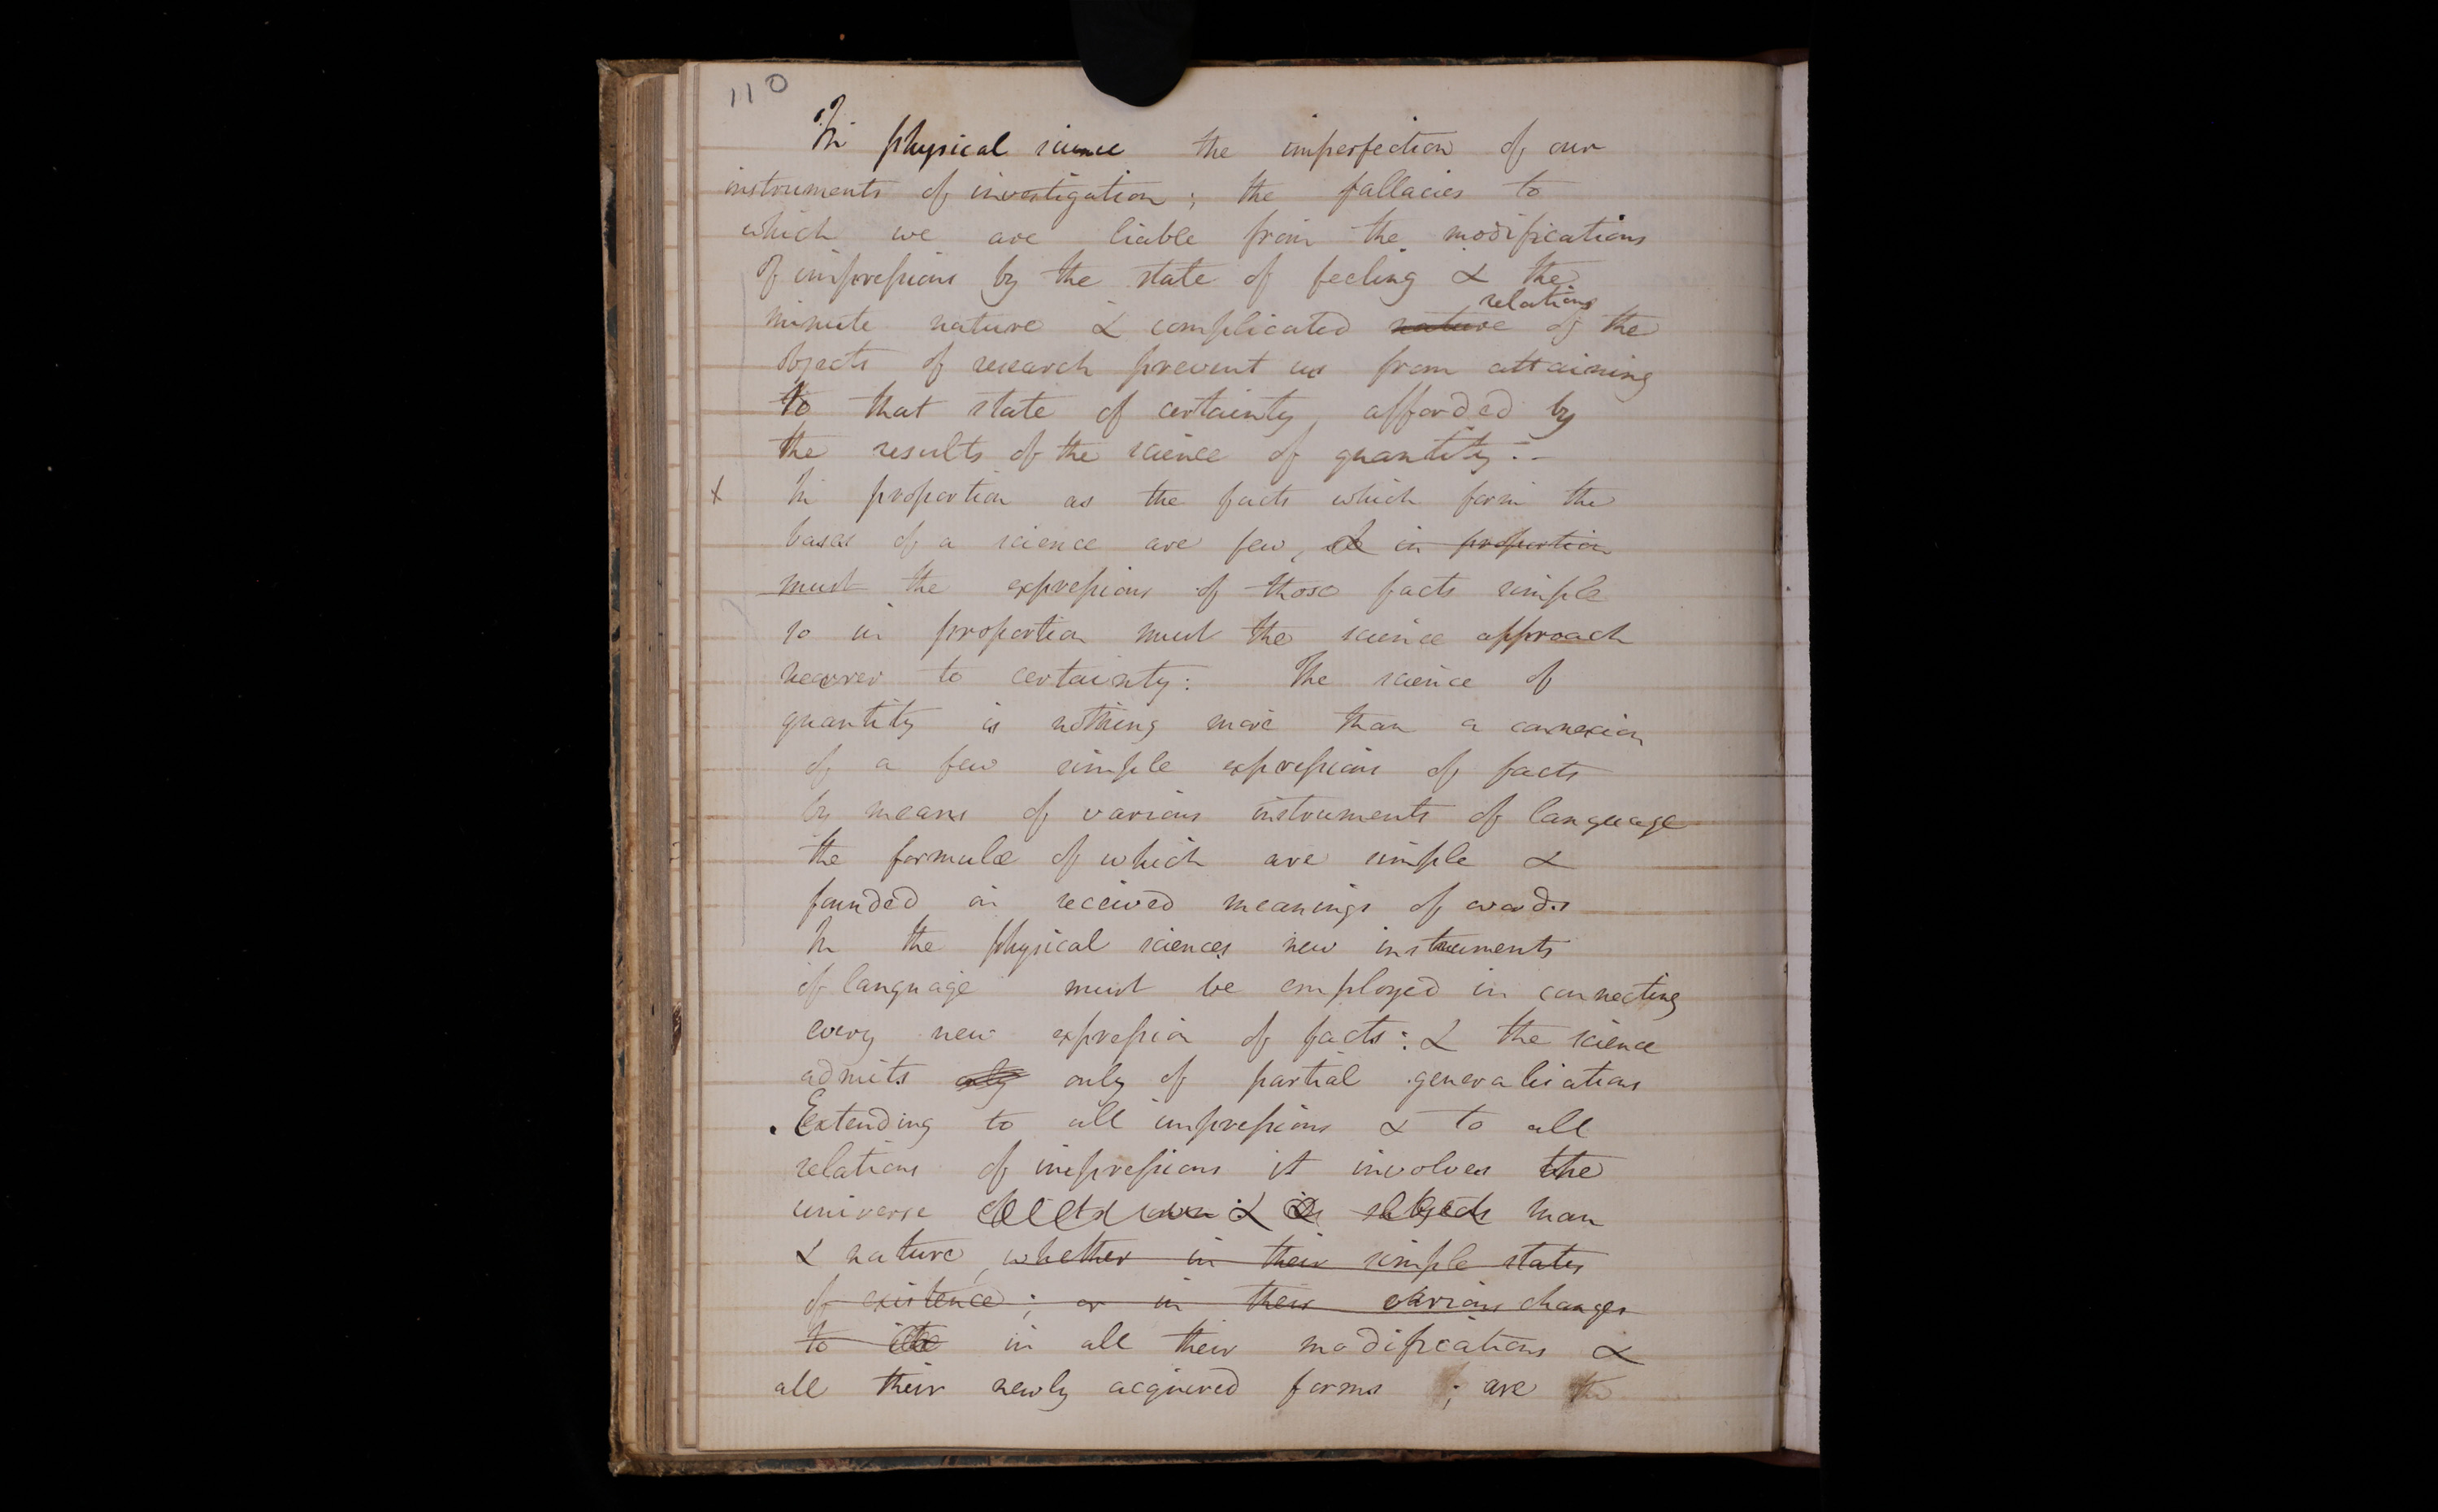 110
In physical science the imperfection of our
instruments of investigation; the fallacies to
which we are liable from the modifications
of impressions by the state of feeling & the
relations
minute nature & complicated nature of the
objects of research prevent us from attaining
to that state of certainty, afforded by
the results of the science of quantity:-
x In proportion as the facts which form the
bases of a science are few, & in proportion
must the expressions of those facts simple
so in proportion must the science approach
nearer to certainty: The science of
quantity is nothing more than a connexion
of a few simple expressions of facts
by means of various instruments of language
the formulæ of which are simple &
founded on received meanings of words
In the physical sciences new instruments
of language must be employed in connecting
every new expression of facts: & the science
admits only only of partial generalisations
Extending to all impressions & to all
relations of impressions it involves the
universe & man
& nature, whether in their simple states
of existence; or in their various changes
to in all their modifications &
all their newly acquired forms; are the